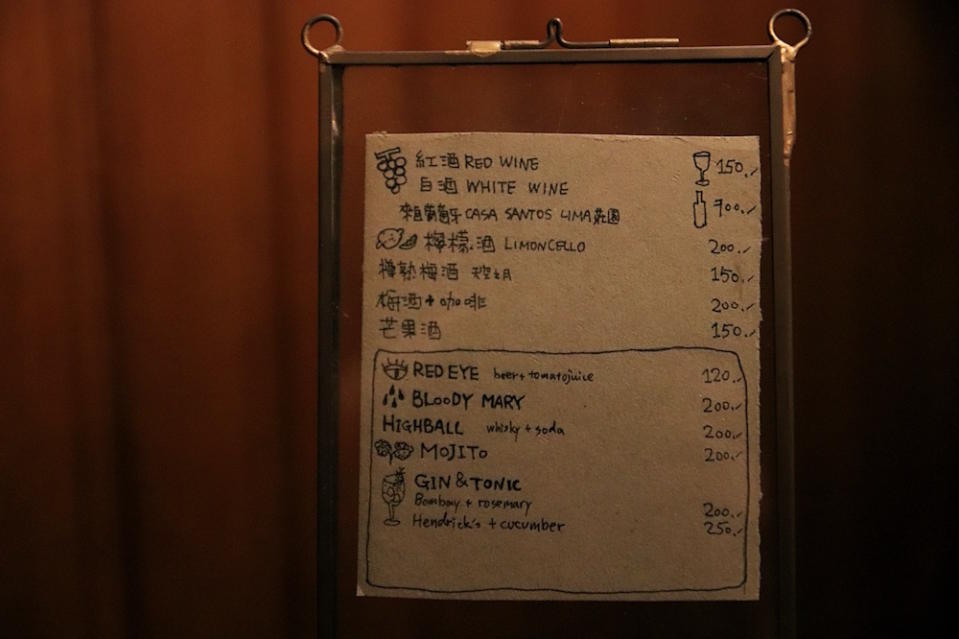 紅酒 RED WINE 150.-
白酒 WHITE WINE
來自葡萄牙 CASA SANTOS LIMA 莊園 700.-
檸檬酒 LIMONCELLO 200.-
樽熟梅酒 150.-
梅酒+咖啡 200.-
芒果酒 150.-
RED EYE beer+tomatojuice 120.-
BLOODY MARY 200.-
HIGHBALL whisky+soda 200.-
MOJITO 200.-
GIN & TONIC
Bombay + rosemary 200.-
Hendrick's + cucumber 250.-